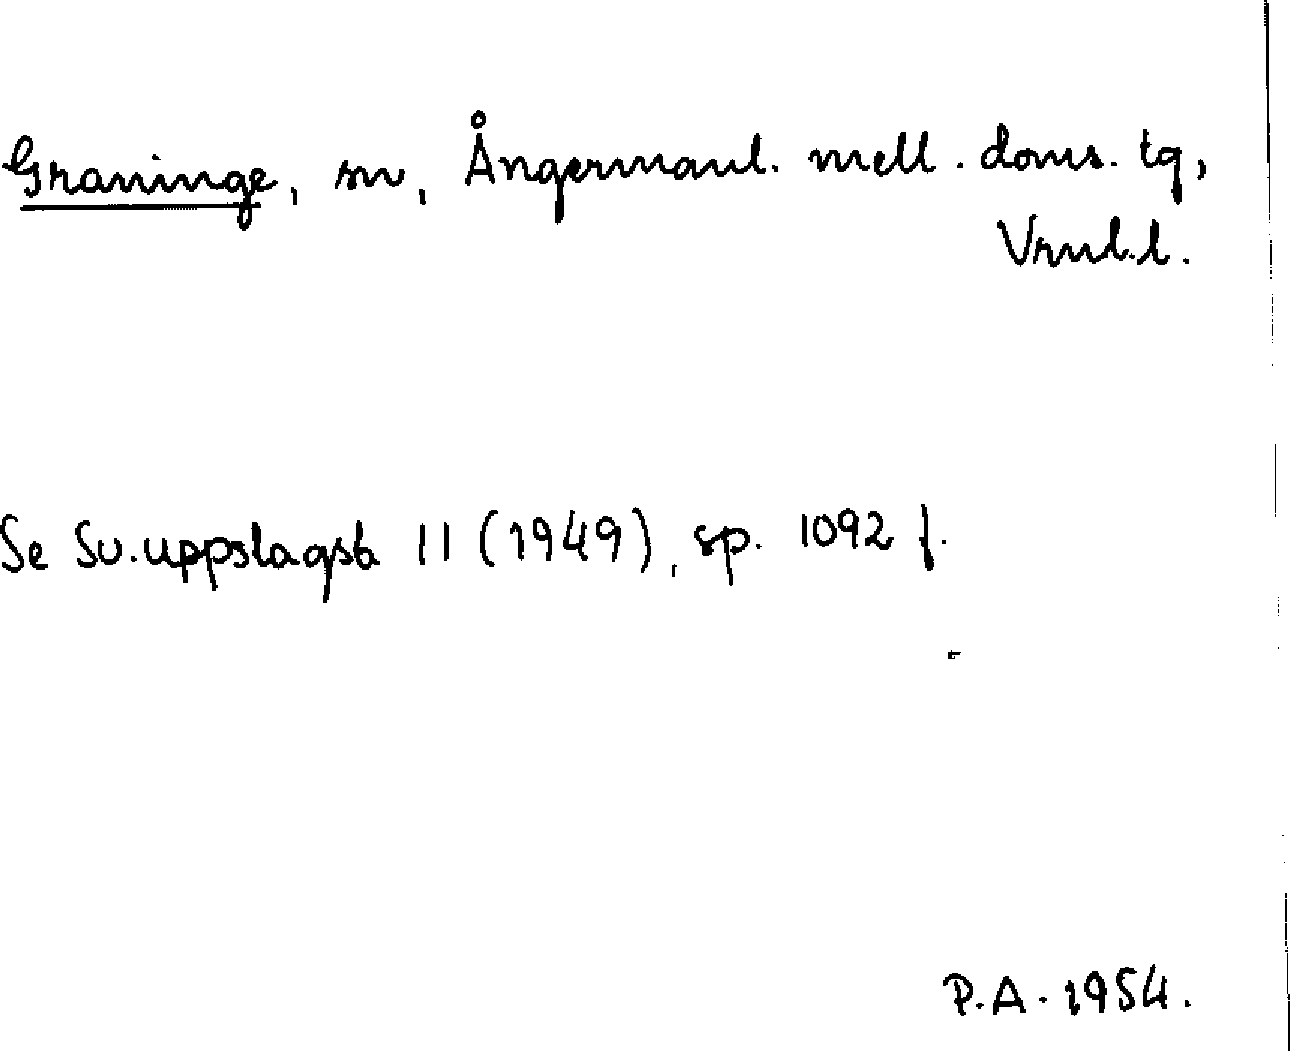 Graninge, sn, Ångermanl. mell. doms. tg,
Vrnl.l.
Se Sv. uppslagsb 11 (1949), sp. 1092 f.
P.A. 1954.